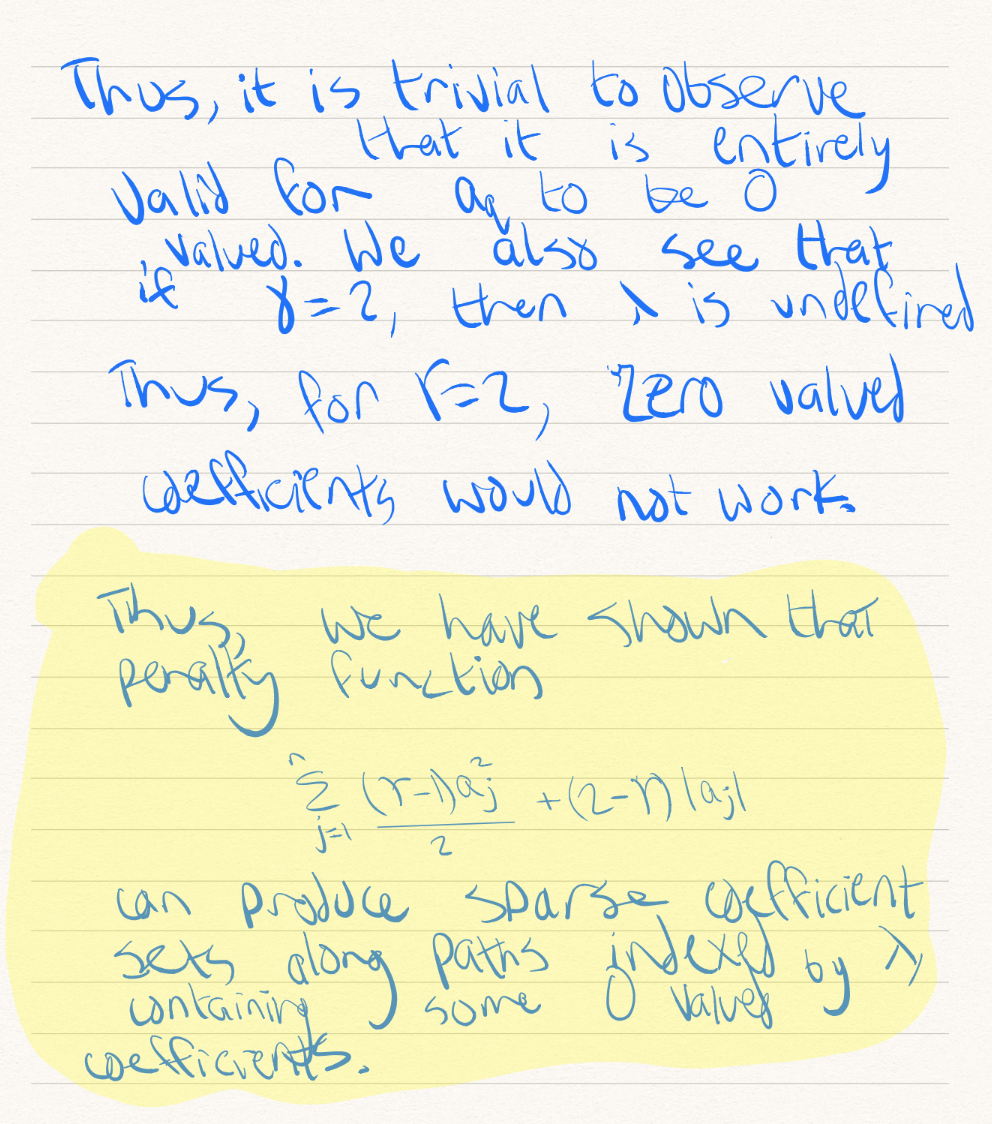 Thus, it is trivial to observe
that it is entirely
valid for a_q to be 0
valued. We also see that
if γ=2, then λ is undefined
Thus, for γ=2, zero valued
coefficients would not work.
Thus, we have shown that
penalty function
\sum_{j=1}^{n} \frac{(γ-1)a_j^2}{2} + (2-γ)|a_j|
can produce sparse coefficient
sets along paths indexed by λ
containing some 0 valued
coefficients.